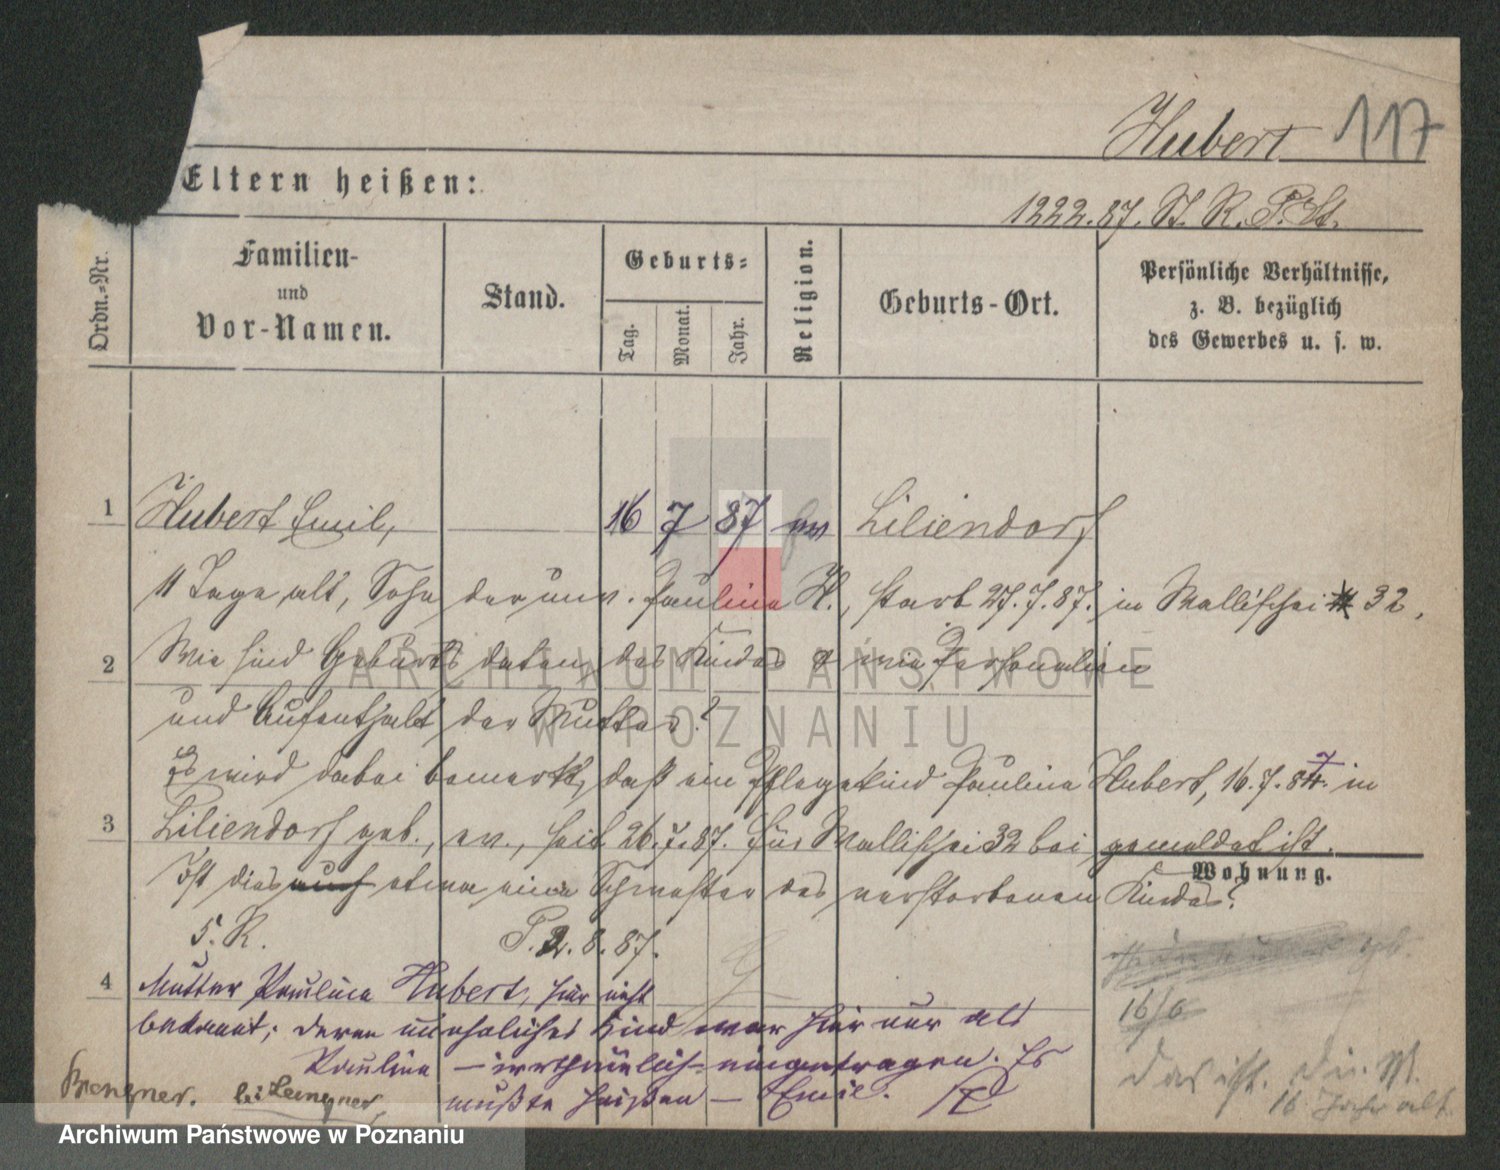 Hubert 117
Eltern heißen:
1222.87. St. R. P. St.
Ordn.-Nr.
Familien-
und
Vor-Namen.
Stand.
Geburts-
Tag.
Monat.
Jahr.
Religion.
Geburts-Ort.
Persönliche Verhältnisse,
z. B. bezüglich
des Gewerbes u. s. w.
1 Hubert Emil, 16 7 87 ev Liliendorf
11 Tage alt, Sohn der unv. Pauline H., starb 27.7.87. in Wallischei 32.
2 Wie sind Geburtsdaten des Kindes Personalien
und Aufenthalt der Mutter?
Es wird dabei bemerkt, daß ein Pflegekind Pauline Hubert, 16.7.87. in
3 Liliendorf geb., ev., seit 26.7.87. für Wallischei 32 bei gemeldet ist.
Wohnung.
Ist dies auch etwa eine Schwester des verstorbenen Kindes?
5. R. P. 2.8.87.
4 Mutter Pauline Hubert, hier nicht
bekannt; deren uneheliches Kind war hier nur als
Pauline – irrthümlich – eingetragen. Es
mußte heißen – Emil.
bei
geb.
16/6
das ist. die M.
16 Jahr alt.
ARCHIWUM PAŃSTWOWE
W POZNANIU
Archiwum Państwowe w Poznaniu